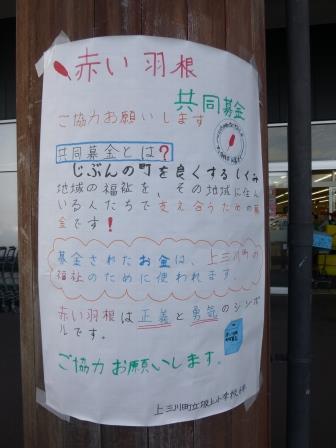 赤い羽根
共同募金
ご協力お願いします
共同募金とは?
じぶんの町を良くするしくみ
地域の福祉を、その地域に住ん
でいる人たちで支え合うための募
金です!
募金されたお金は、上三川町の
福祉のために使われます。
赤い羽根は正義と勇気のシンボ
ルです。
ご協力お願いします。
上三川町立坂上小学校